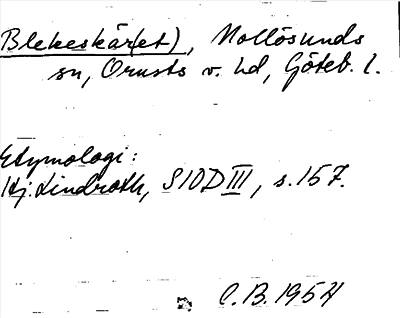 Blekeskär(et), Mollösunds
sn, Orusts v. hd, Göteb. l.
Etymologi:
Hj. Lindroth, SIOD III, s. 157.
C.B. 1954